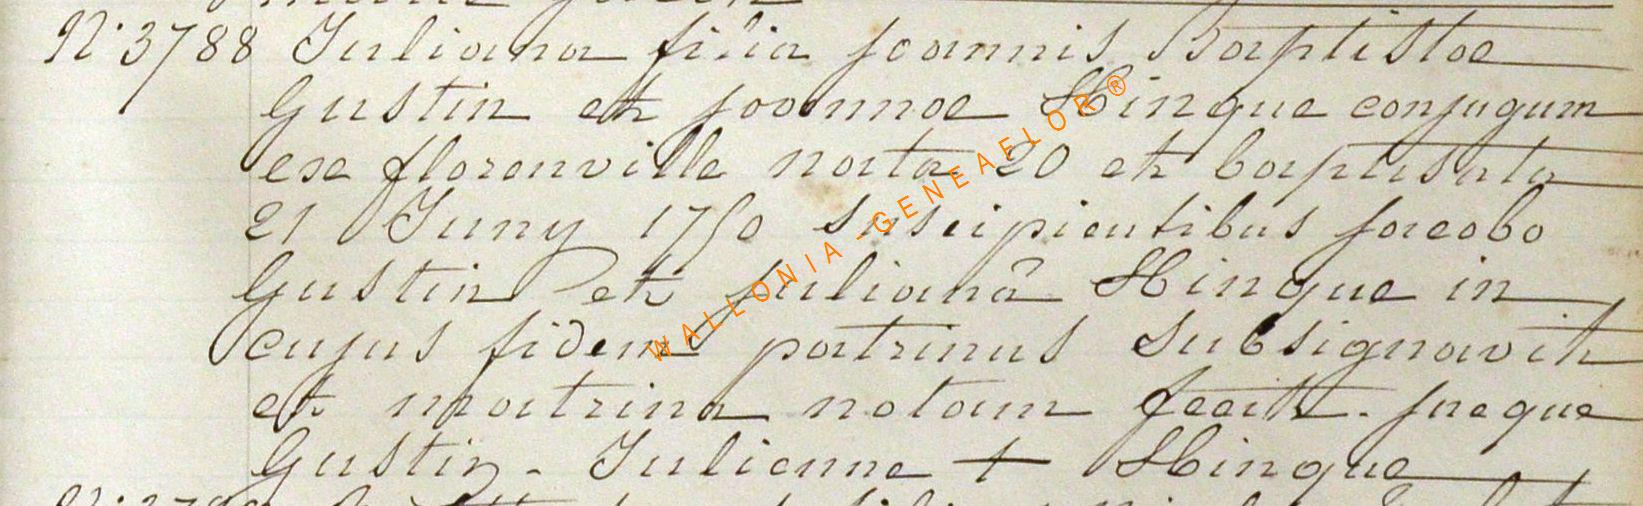 N° 3788 Juliana filia joannis Baptistae
Gustin et joannae Hinque conjugum
ex florenville nata 20 et baptisata
21 Juny 1750 suscipientibus jacobo
Gustin et julianâ Hinque in
cujus fidem patrinus subsignavit
et matrina notam fecit. jacque
Gustin - Julienne + Hinque
WALLONIA-GENEAFLOR®